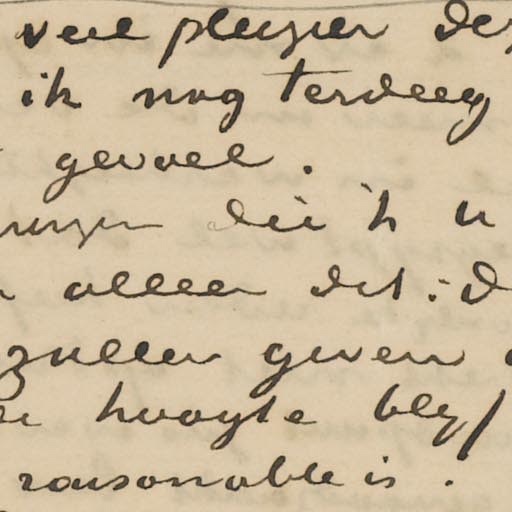 veel pleizier de
ik nog terdeeg
gevoel.
die ik u
alleen dit: d
zullen geven
hoogte bly
raisonnable is.